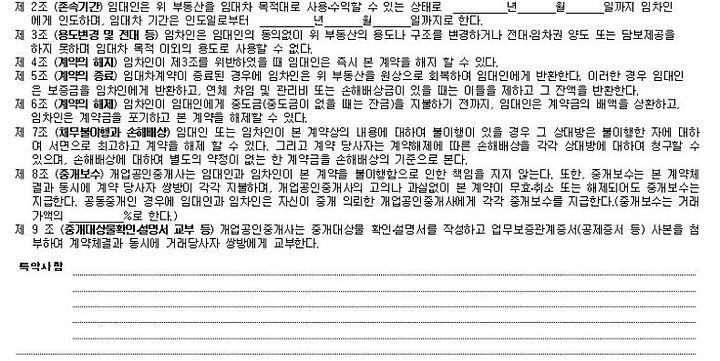 제 2조 (존속기간) 임대인은 위 부동산을 임대차 목적대로 사용·수익할 수 있는 상태로 ________년____월____일까지 임차인
에게 인도하며, 임대차 기간은 인도일로부터 ________년____월____일까지로 한다.
제 3조 (용도변경 및 전대 등) 임차인은 임대인의 동의없이 위 부동산의 용도나 구조를 변경하거나 전대·임차권 양도 또는 담보제공을
하지 못하며 임대차 목적 이외의 용도로 사용할 수 없다.
제 4조 (계약의 해지) 임차인이 제3조를 위반하였을 때 임대인은 즉시 본 계약을 해지 할 수 있다.
제 5조 (계약의 종료) 임대차계약이 종료된 경우에 임차인은 위 부동산을 원상으로 회복하여 임대인에게 반환한다. 이러한 경우 임대인
은 보증금을 임차인에게 반환하고, 연체 차임 및 관리비 또는 손해배상금이 있을 때는 이들을 제하고 그 잔액을 반환한다.
제 6조 (계약의 해제) 임차인이 임대인에게 중도금(중도금이 없을 때는 잔금)을 지불하기 전까지, 임대인은 계약금의 배액을 상환하고,
임차인은 계약금을 포기하고 본 계약을 해제할 수 있다.
제 7조 (채무불이행과 손해배상) 임대인 또는 임차인이 본 계약상의 내용에 대하여 불이행이 있을 경우 그 상대방은 불이행한 자에 대하
여 서면으로 최고하고 계약을 해제 할 수 있다. 그리고 계약 당사자는 계약해제에 따른 손해배상을 각각 상대방에 대하여 청구할 수
있으며, 손해배상에 대하여 별도의 약정이 없는 한 계약금을 손해배상의 기준으로 본다.
제 8조 (중개보수) 개업공인중개사는 임대인과 임차인이 본 계약을 불이행함으로 인한 책임을 지지 않는다. 또한, 중개보수는 본 계약체
결과 동시에 계약 당사자 쌍방이 각각 지불하며, 개업공인중개사의 고의나 과실없이 본 계약이 무효·취소 또는 해제되어도 중개보수는
지급한다. 공동중개인 경우에 임대인과 임차인은 자신이 중개 의뢰한 개업공인중개사에게 각각 중개보수를 지급한다.(중개보수는 거래
가액의 ________%로 한다.)
제 9 조 (중개대상물확인·설명서 교부 등) 개업공인중개사는 중개대상물 확인·설명서를 작성하고 업무보증관계증서(공제증서 등) 사본을 첨
부하여 계약체결과 동시에 거래당사자 쌍방에게 교부한다.
특약사항